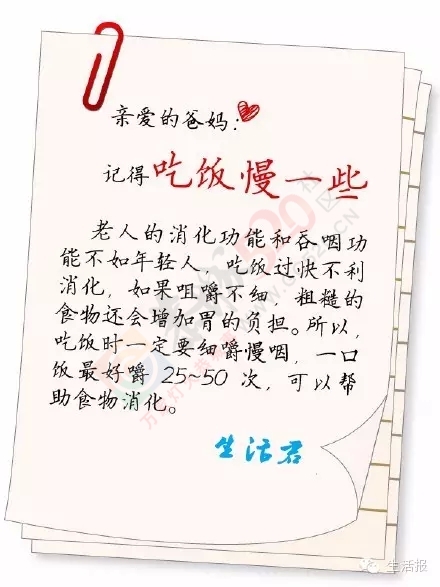 亲爱的爸妈：
记得吃饭慢一些
老人的消化功能和吞咽功
能不如年轻人，吃饭过快不利
消化，如果咀嚼不细，粗糙的
食物还会增加胃的负担。所以，
吃饭时一定要细嚼慢咽，一口
饭最好嚼 25~50 次，可以帮
助食物消化。
生活君
生活报